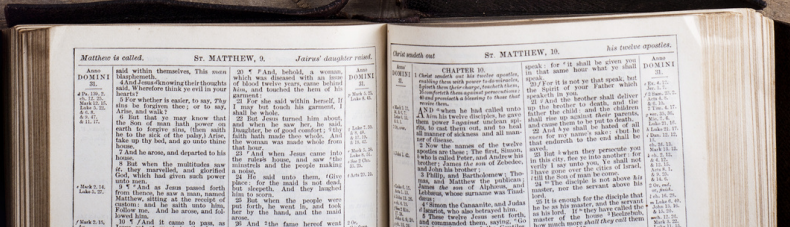 Matthew is called. ST. MATTHEW, 9. Jairus' daughter raised.
Anno
DOMINI
31.
said within themselves, This man
blasphemeth.
4 And Jesus knowing their thoughts
said, Wherefore think ye evil in your
hearts?
5 For whether is easier, to say, Thy
sins be forgiven thee; or to say,
Arise, and walk?
6 But that ye may know that
the Son of man hath power on
earth to forgive sins, (then saith
he to the sick of the palsy,) Arise,
take up thy bed, and go unto thine
house.
7 And he arose, and departed to his
house.
8 But when the multitudes saw
it, they marvelled, and glorified
God, which had given such power
unto men.
9 ¶ And as Jesus passed forth
from thence, he saw a man, named
Matthew, sitting at the receipt of
custom: and he saith unto him,
Follow me. And he arose, and fol-
lowed him.
10 ¶ And it came to pass, as
20 ¶ And, behold, a woman,
which was diseased with an issue
of blood twelve years, came behind
him, and touched the hem of his
garment:
21 For she said within herself, If
I may but touch his garment, I
shall be whole.
22 But Jesus turned him about,
and when he saw her, he said,
Daughter, be of good comfort; thy
faith hath made thee whole. And
the woman was made whole from
that hour.
23 And when Jesus came into
the ruler's house, and saw the
minstrels and the people making
a noise,
24 He said unto them, Give
place: for the maid is not dead,
but sleepeth. And they laughed
him to scorn.
25 But when the people were
put forth, he went in, and took
her by the hand, and the maid
arose.
26 And the fame hereof went
Anno
DOMINI
31.
Christ sendeth out ST. MATTHEW, 10. his twelve apostles,
Anno
DOMINI
31.
CHAPTER 10.
1 Christ sendeth out his twelve apostles,
AND when he had called unto
him his twelve disciples, he gave
them power against unclean spi-
rits, to cast them out, and to heal
all manner of sickness and all man-
ner of disease.
2 Now the names of the twelve
apostles are these; The first, Simon,
who is called Peter, and Andrew his
brother; James the son of Zebedee,
and John his brother;
3 Philip, and Bartholomew; Tho-
mas, and Matthew the publican;
James the son of Alphæus, and
Lebbæus, whose surname was Thad-
dæus;
4 Simon the Canaanite, and Judas
Iscariot, who also betrayed him.
5 These twelve Jesus sent forth,
and commanded them, saying, Go
speak: for it shall be given you
in that same hour what ye shall
speak.
20 For it is not ye that speak, but
the Spirit of your Father which
speaketh in you.
21 And the brother shall deliver
up the brother to death, and the
father the child: and the children
shall rise up against their parents,
and cause them to be put to death.
22 And ye shall be hated of all
men for my name's sake: but he
that endureth to the end shall be
saved.
23 But when they persecute you
in this city, flee ye into another: for
verily I say unto you, Ye shall not
have gone over the cities of Israel,
till the Son of man be come.
24 The disciple is not above his
master, nor the servant above his
lord.
25 It is enough for the disciple that
he be as his master, and the servant
as his lord. If they have called the
master of the house Beelzebub,
how much more shall they call them
Anno
DOMINI
31.